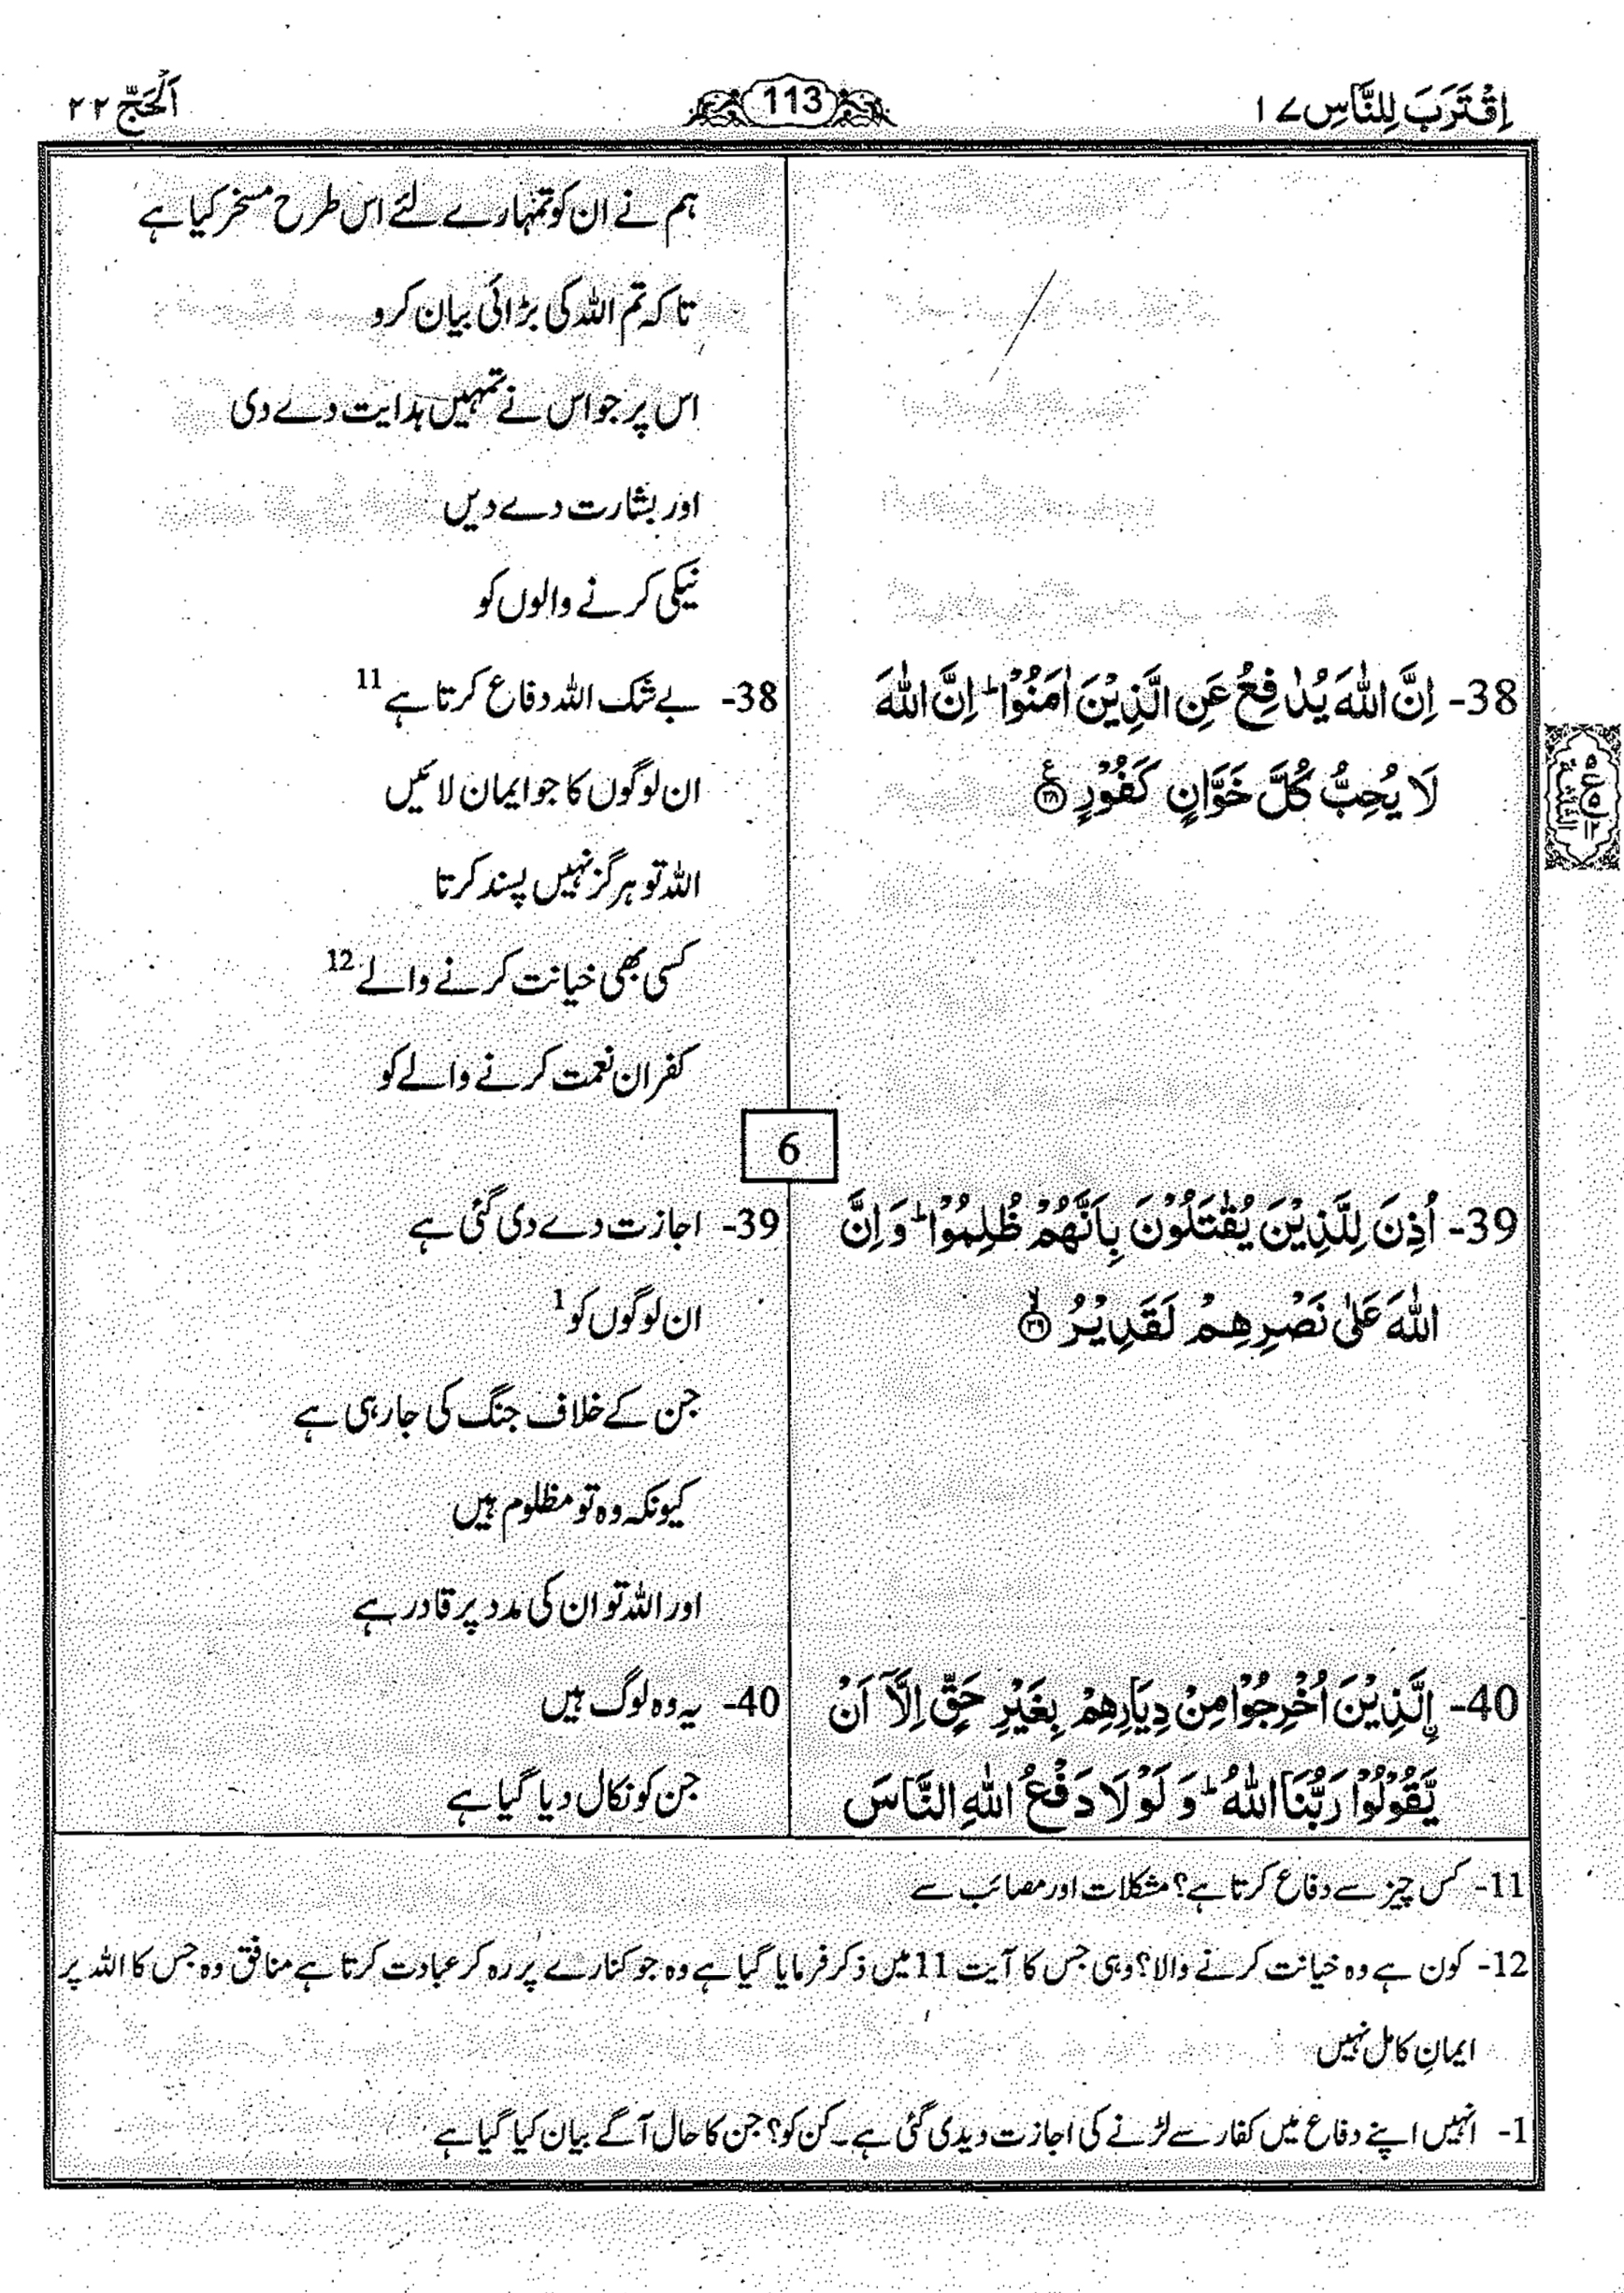 اِقْتَرَبَ لِلنَّاسِ ۱۷
113
اَلْحَجّ ۲۲
ہم نے ان کو تمہارے لئے اس طرح مسخر کیا ہے
تا کہ تم اللہ کی بڑائی بیان کرو
اس پر جو اس نے تمہیں ہدایت دے دی
اور بشارت دے دیں
نیکی کرنے والوں کو
38- اِنَّ اللّٰهَ يُدٰفِعُ عَنِ الَّذِيْنَ اٰمَنُوْا ؕ اِنَّ اللّٰهَ
لَا يُحِبُّ كُلَّ خَوَّانٍ كَفُوْرٍ ۟ع ۳۸
38- بے شک اللہ دفاع کرتا ہے 11
ان لوگوں کا جو ایمان لائیں
اللہ تو ہرگز نہیں پسند کرتا
کسی بھی خیانت کرنے والے 12
کفران نعمت کرنے والے کو
6
39- اُذِنَ لِلَّذِيْنَ يُقٰتَلُوْنَ بِاَنَّهُمْ ظُلِمُوْا ؕ وَ اِنَّ
اللّٰهَ عَلٰى نَصْرِهِمْ لَقَدِيْرُ ۙ ۳۹
39- اجازت دے دی گئی ہے
ان لوگوں کو 1
جن کے خلاف جنگ کی جارہی ہے
کیونکہ وہ تو مظلوم ہیں
اور اللہ تو ان کی مدد پر قادر ہے
40- اِ۟لَّذِيْنَ اُخْرِجُوْا مِنْ دِيَارِهِمْ بِغَيْرِ حَقٍّ اِلَّاۤ اَنْ
يَّقُوْلُوْا رَبُّنَا اللّٰهُ ؕ وَ لَوْ لَا دَفْعُ اللّٰهِ النَّاسَ
40- یہ وہ لوگ ہیں
جن کو نکال دیا گیا ہے
11- کس چیز سے دفاع کرتا ہے؟ مشکلات اور مصائب سے
12- کون ہے وہ خیانت کرنے والا؟ وہی جس کا آیت 11 میں ذکر فرمایا گیا ہے وہ جو کنارے پر رہ کر عبادت کرتا ہے منافق وہ جس کا اللہ پر
ایمانِ کامل نہیں
1- انہیں اپنے دفاع میں کفار سے لڑنے کی اجازت دیدی گئی ہے۔ کن کو؟ جن کا حال آگے بیان کیا گیا ہے